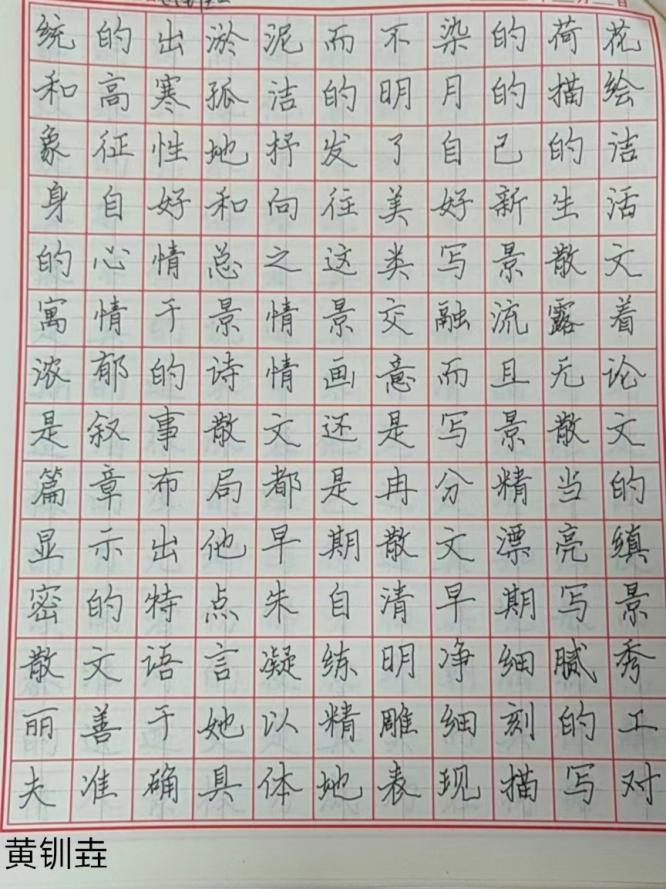 统的出淤泥而不染的荷花
和高寒孤洁的明月的描绘
象征性地抒发了自己的洁
身自好和向往美好新生活
的心情总之这类写景散文
寓情于景情景交融流露着
浓郁的诗情画意而且无论
是叙事散文还是写景散文
篇章布局都是冉分精当的
显示出他早期散文漂亮缜
密的特点朱自清早期写景
散文语言凝练明净细腻秀
丽善于她以精雕细刻的工
夫准确具体地表现描写对
黄钏垚